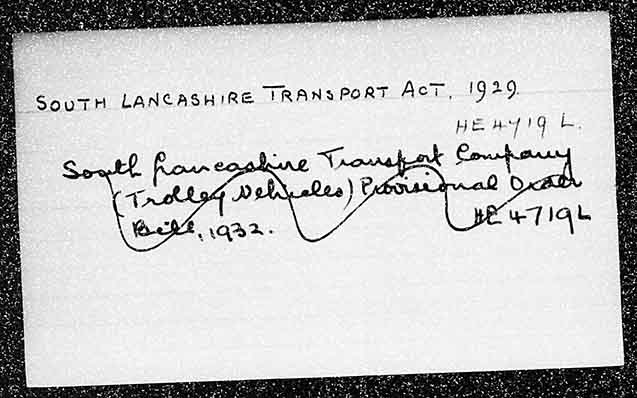 SOUTH LANCASHIRE TRANSPORT ACT, 1929.
HE 4719 L.
South Lancashire Transport Company
(Trolley Vehicles) Provisional Order
Bill, 1932.
HE 4719L